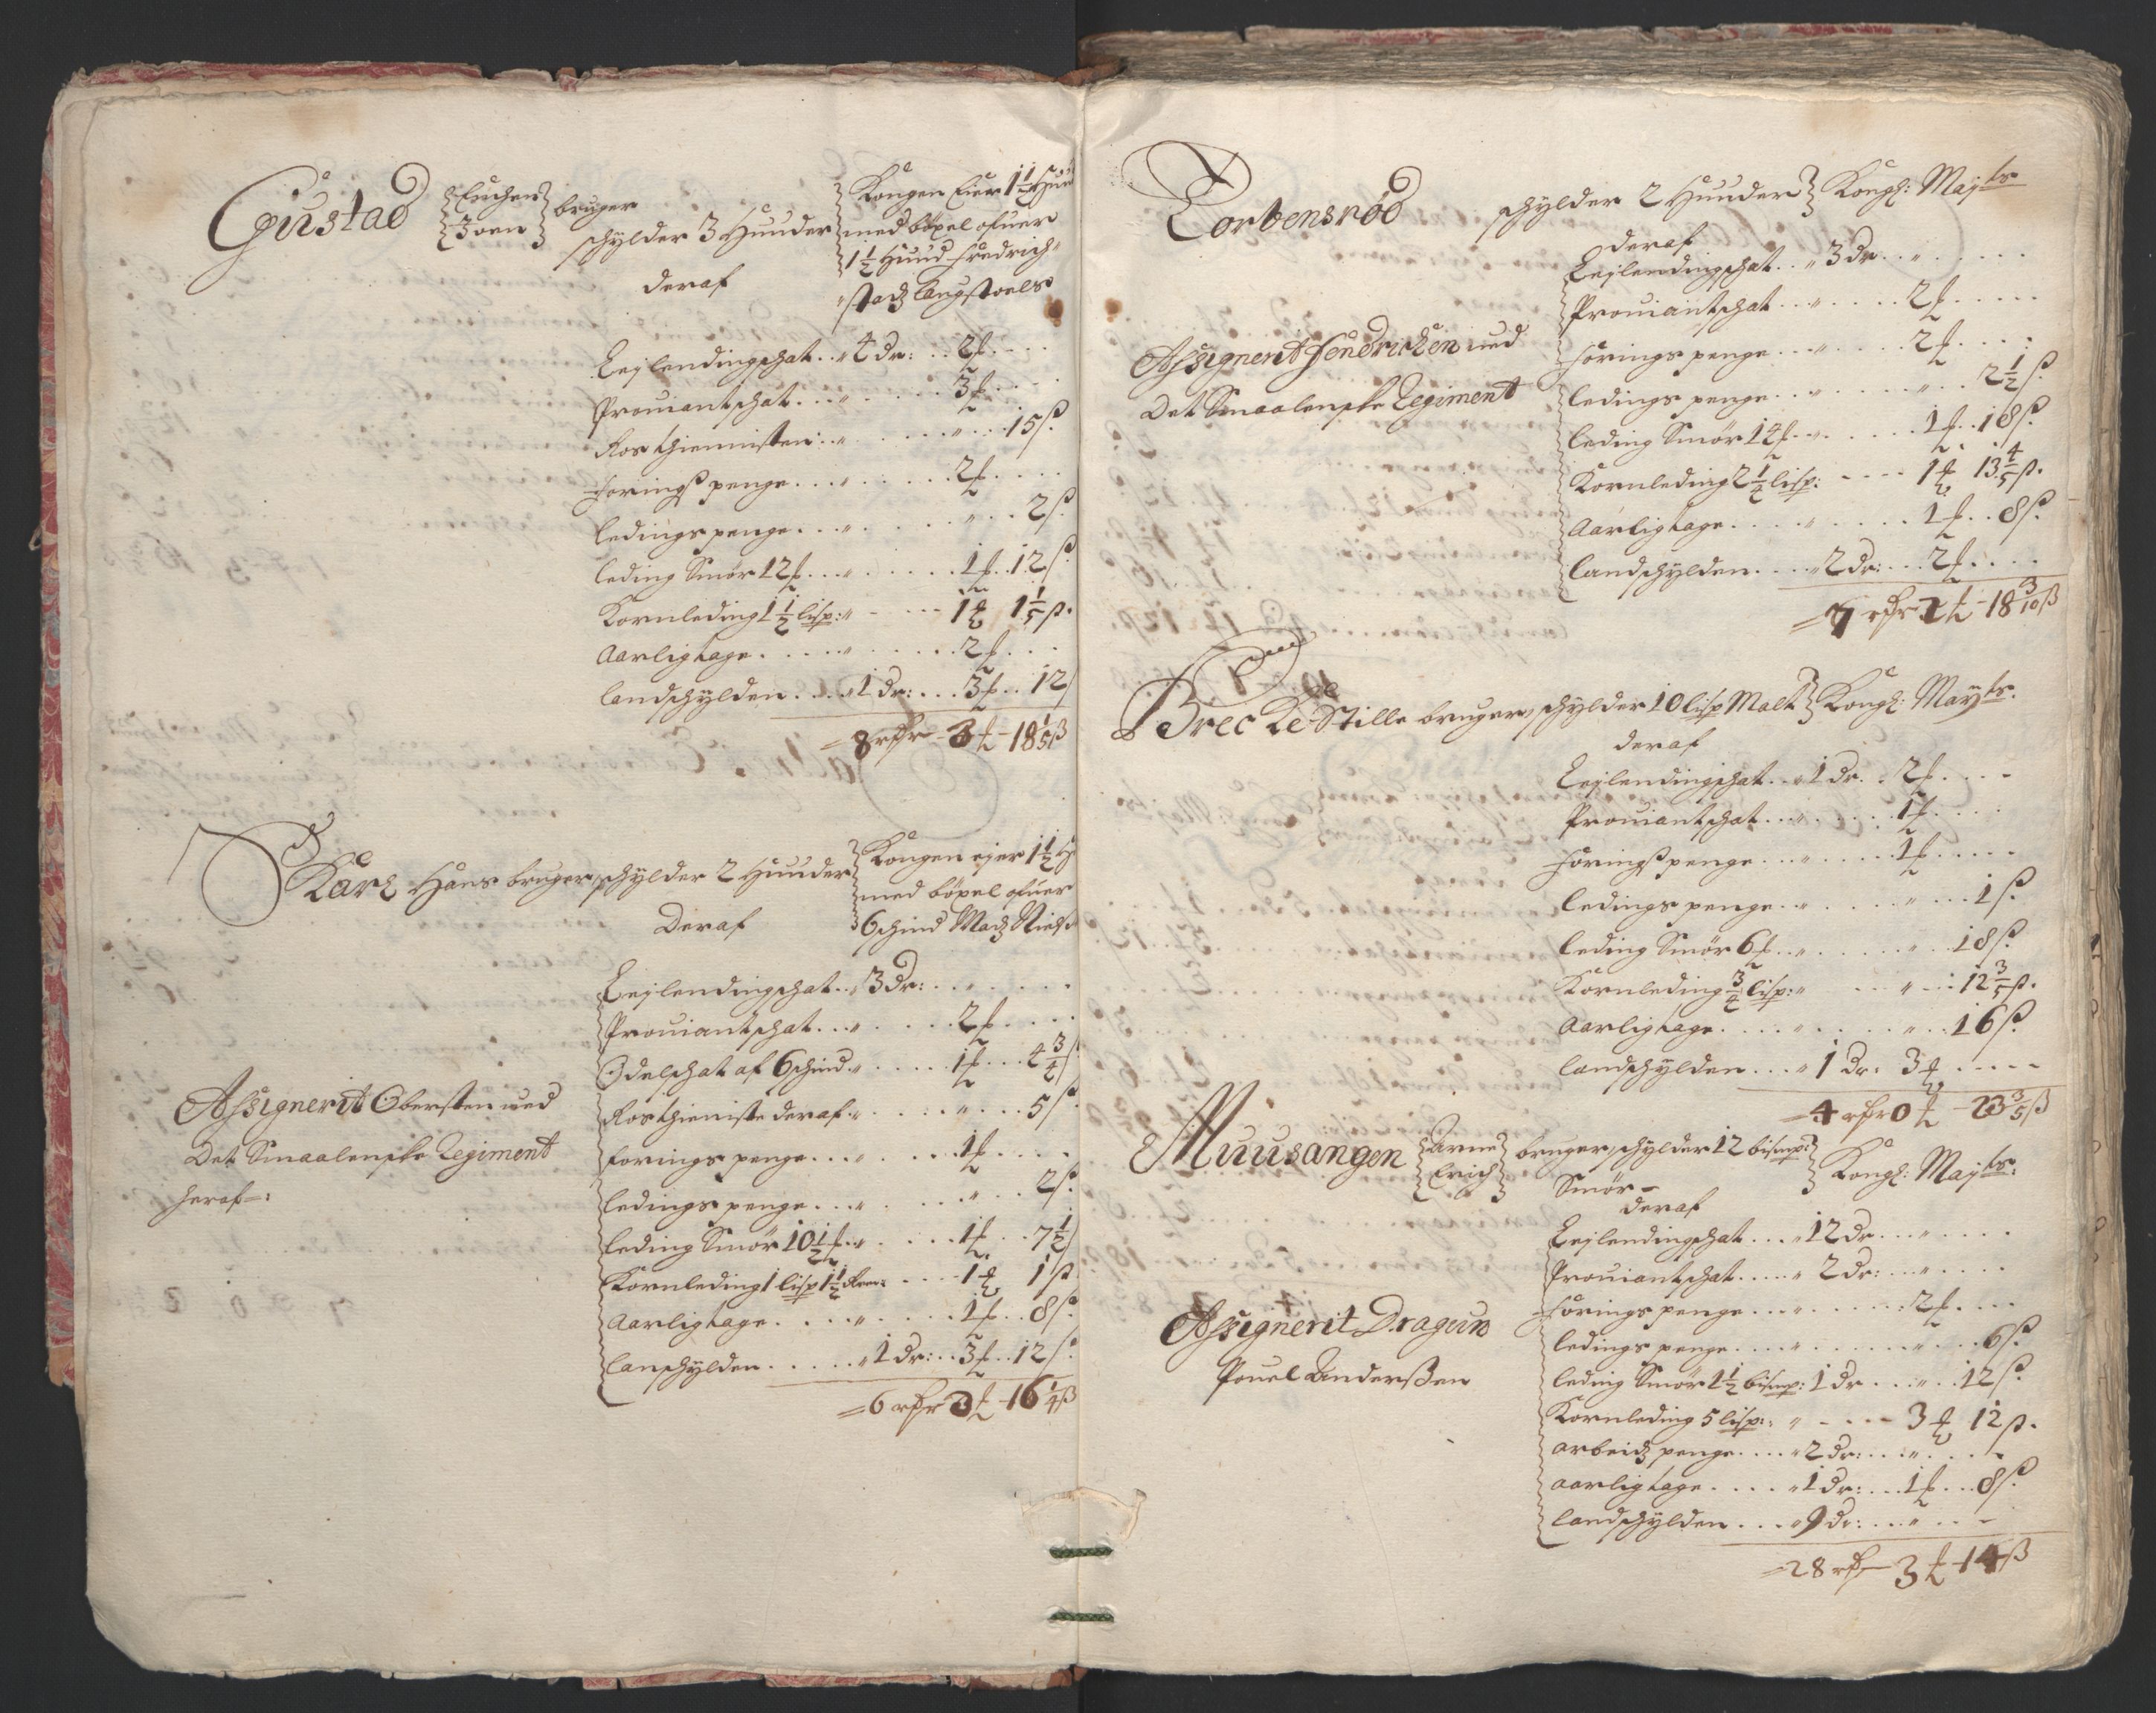 Gustad Euchen Joen bruger
schylder 3 Huuder
deraf
Kongen Eier 1 1/2 Huud
med böxel ofuer
1 1/2 Huud Fredrich-
stadz Laugstoels
Leilendingschat .. 4 dr: .. 2 f
Prouiantschat ... 3 f
Rosthiennisten ... 15 ß.
Foringß penge ... 2 f
Ledings penge ... 2 ß.
Leding Smör 12 f ... 1 f .. 12 ß
Kornleding 1 1/2 lisp: ... 1 f 1 1/5 ß.
Aarligtage ... 2 f
Landschylden ... 1 dr: ... 3 f .. 12
= 8 rdr - 3 f - 18 1/5 ß
Karl Hans bruger, schylder 2 Huuder
Deraf
Kongen ejer 1 1/2 H
med böxel ofuer
6 schind Madz Niels
Leilendingschat .. 3 dr:
Prouiantschat ... 2 f
Odelschat af 6 schind ... 1 f ... 4 3/4 ß
Rosthieniste deraf ... 5 ß
Forings penge ... 1 f
Ledings penge ... 2 ß.
Leding Smör 10 1/2 f ... 1 f .. 7 1/2
Kornleding 1 lisp 1 1/2 ... 1 f 1 ß
Aarligtage ... 1 f .. 8 ß.
Lanschylden ... 1 dr: .. 3 f .. 12 ß.
= 6 rdr 3 f - 16 1/4 ß
Assignerit Obersten ued
Det Smaalenske Regiment
heraf =:
Torbensröd schylder 2 Huuder Kongl: Mayts
deraf
Leilendingschat .. 3 dr
Prouiantschat ... 2 f
Forings penge ... 2 f
Ledings penge ... 2 1/2 ß.
Leding Smör 14 f ... 1 f .. 18 ß.
Kornleding 2 1/4 lisp: ... 1 f 13 4/5 ß.
Aarligtage ... 1 f .. 8 ß.
Landschylden ... 2 dr: ... 2 f
= 7 rdr 1 f - 18 3/10 ß
Assignerit Hendrichen ued
Det Smaalenske Regiment
Brecke Stille bruger, schylder 10 lisp Malt Kongl: Mayts.
deraf
Leilendingschat .. 1 dr .. 2 f
Prouiantschat ... 1 f
Foringß penge ... 1 f
Ledings penge ... 1 ß
Leding Smör 6 f ... 18 ß.
Kornleding 3/4 lisp: ... 12 3/5 ß.
Aarligtage ... 16 ß.
Landschylden ... 1 dr: 3 f
= 4 rdr 0 f - 23 3/5 ß
Muusangen Arne Erich bruger, schylder 12 bismp:
Smör - Kongl: Mayts:
deraf
Leilendingschat ... 12 dr
Prouiantschat ... 2 dr:
Forings penge ... 2 f
Ledings penge ... 6 ß.
Leding Smör 1 1/2 bismp: 1 dr ... 12 ß.
Kornleding 5 lisp: ... 3 f 12 ß.
arbeidz penge ... 2 dr:
aarligtage ... 1 dr: ... 1 f ... 8 ß.
Landschylden ... 9 dr:
= 28 rdr - 3 f - 14 ß
Assignerit Dragun
Pouel Anderßen